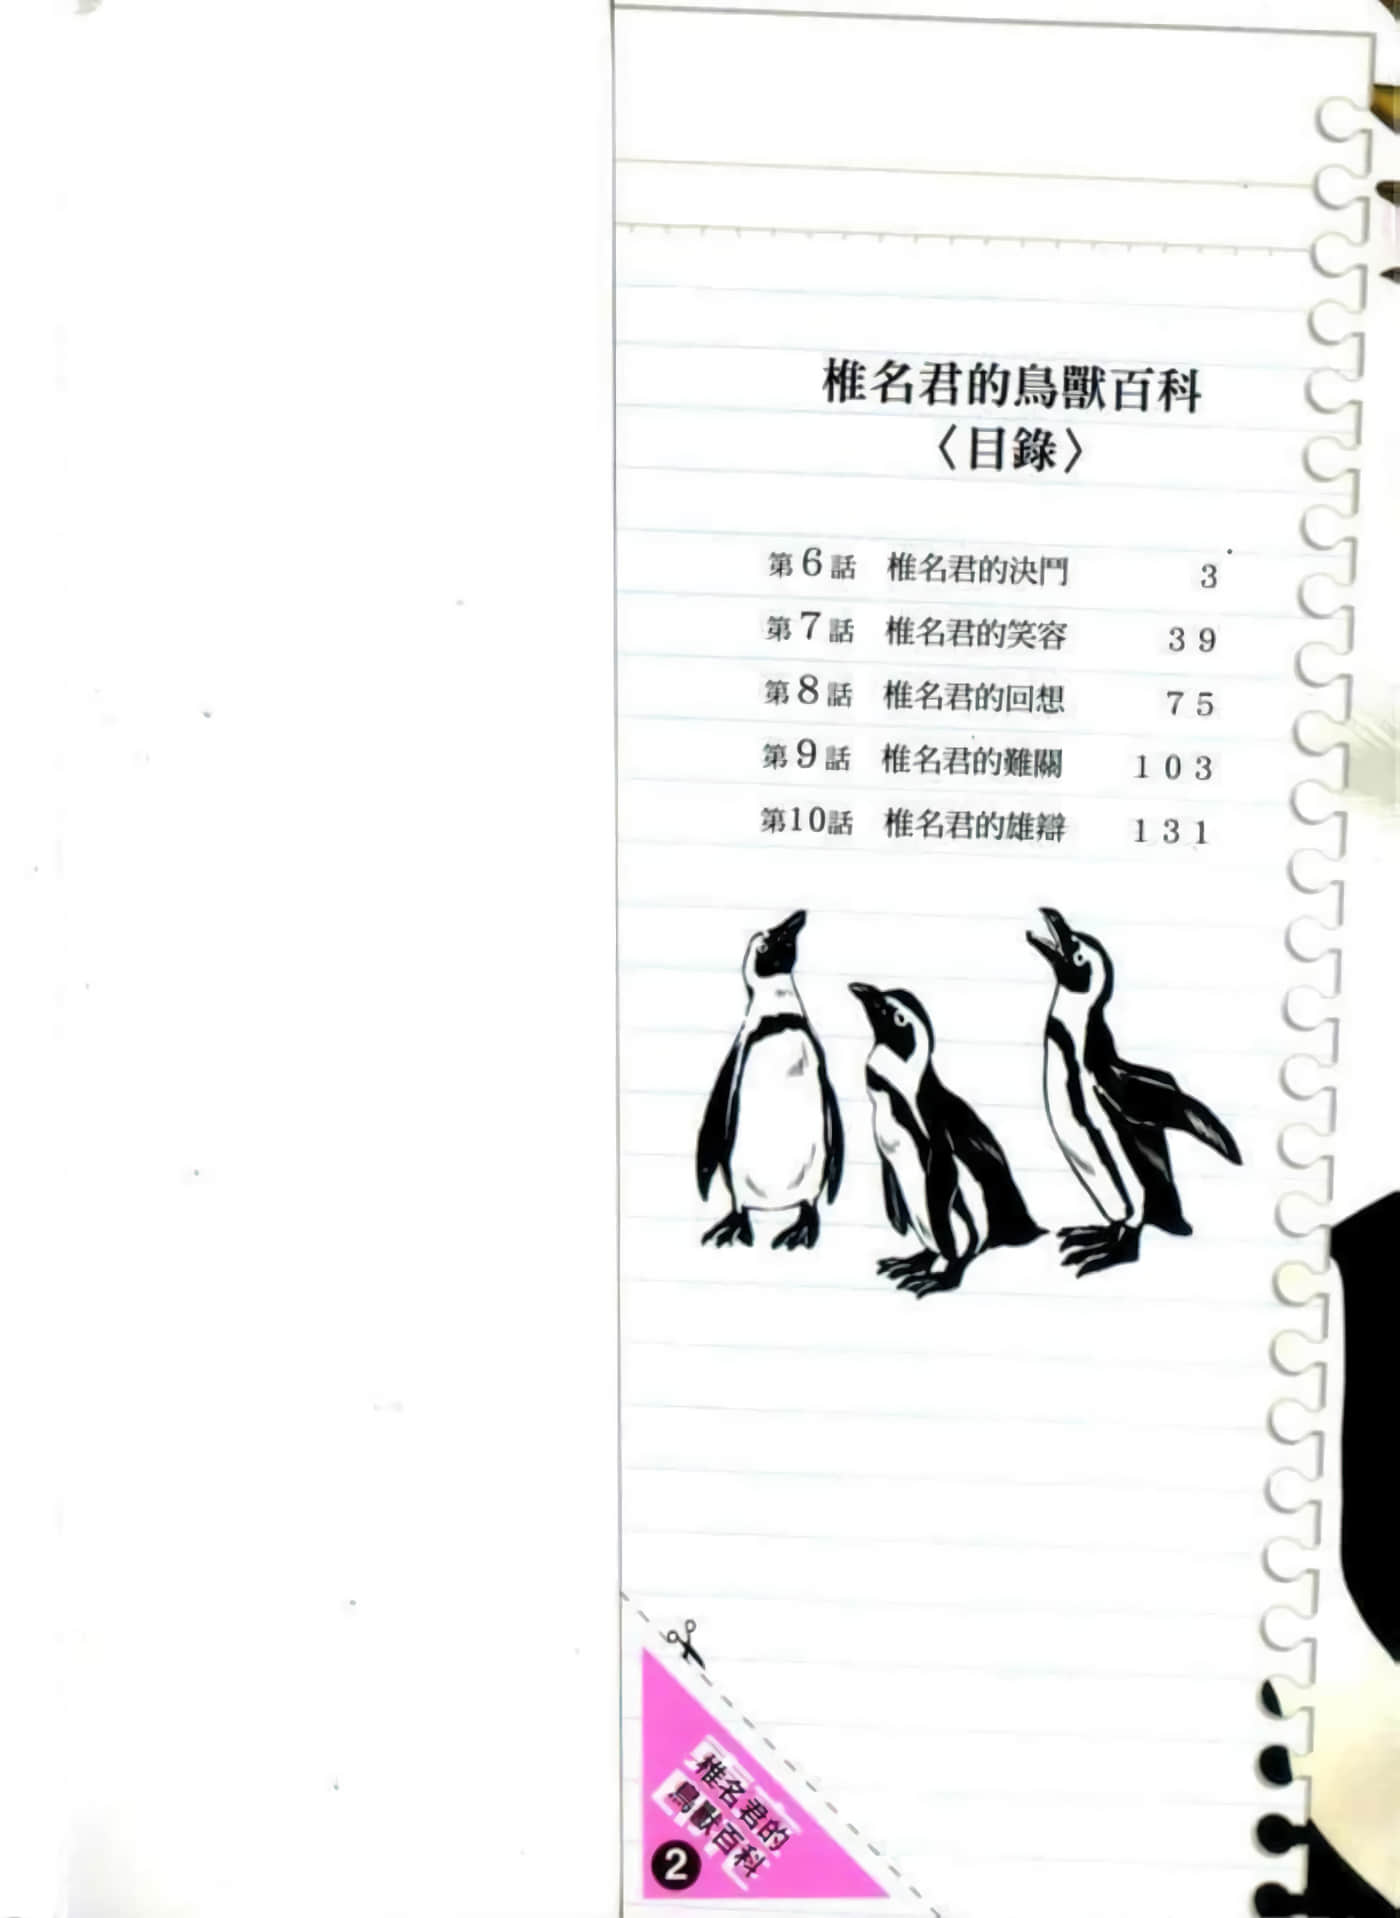 椎名君的鳥獸百科
〈目錄〉
第6話 椎名君的決鬥 3
第7話 椎名君的笑容 39
第8話 椎名君的回想 75
第9話 椎名君的難關 103
第10話 椎名君的雄辯 131
椎名君的
鳥獸百科
2